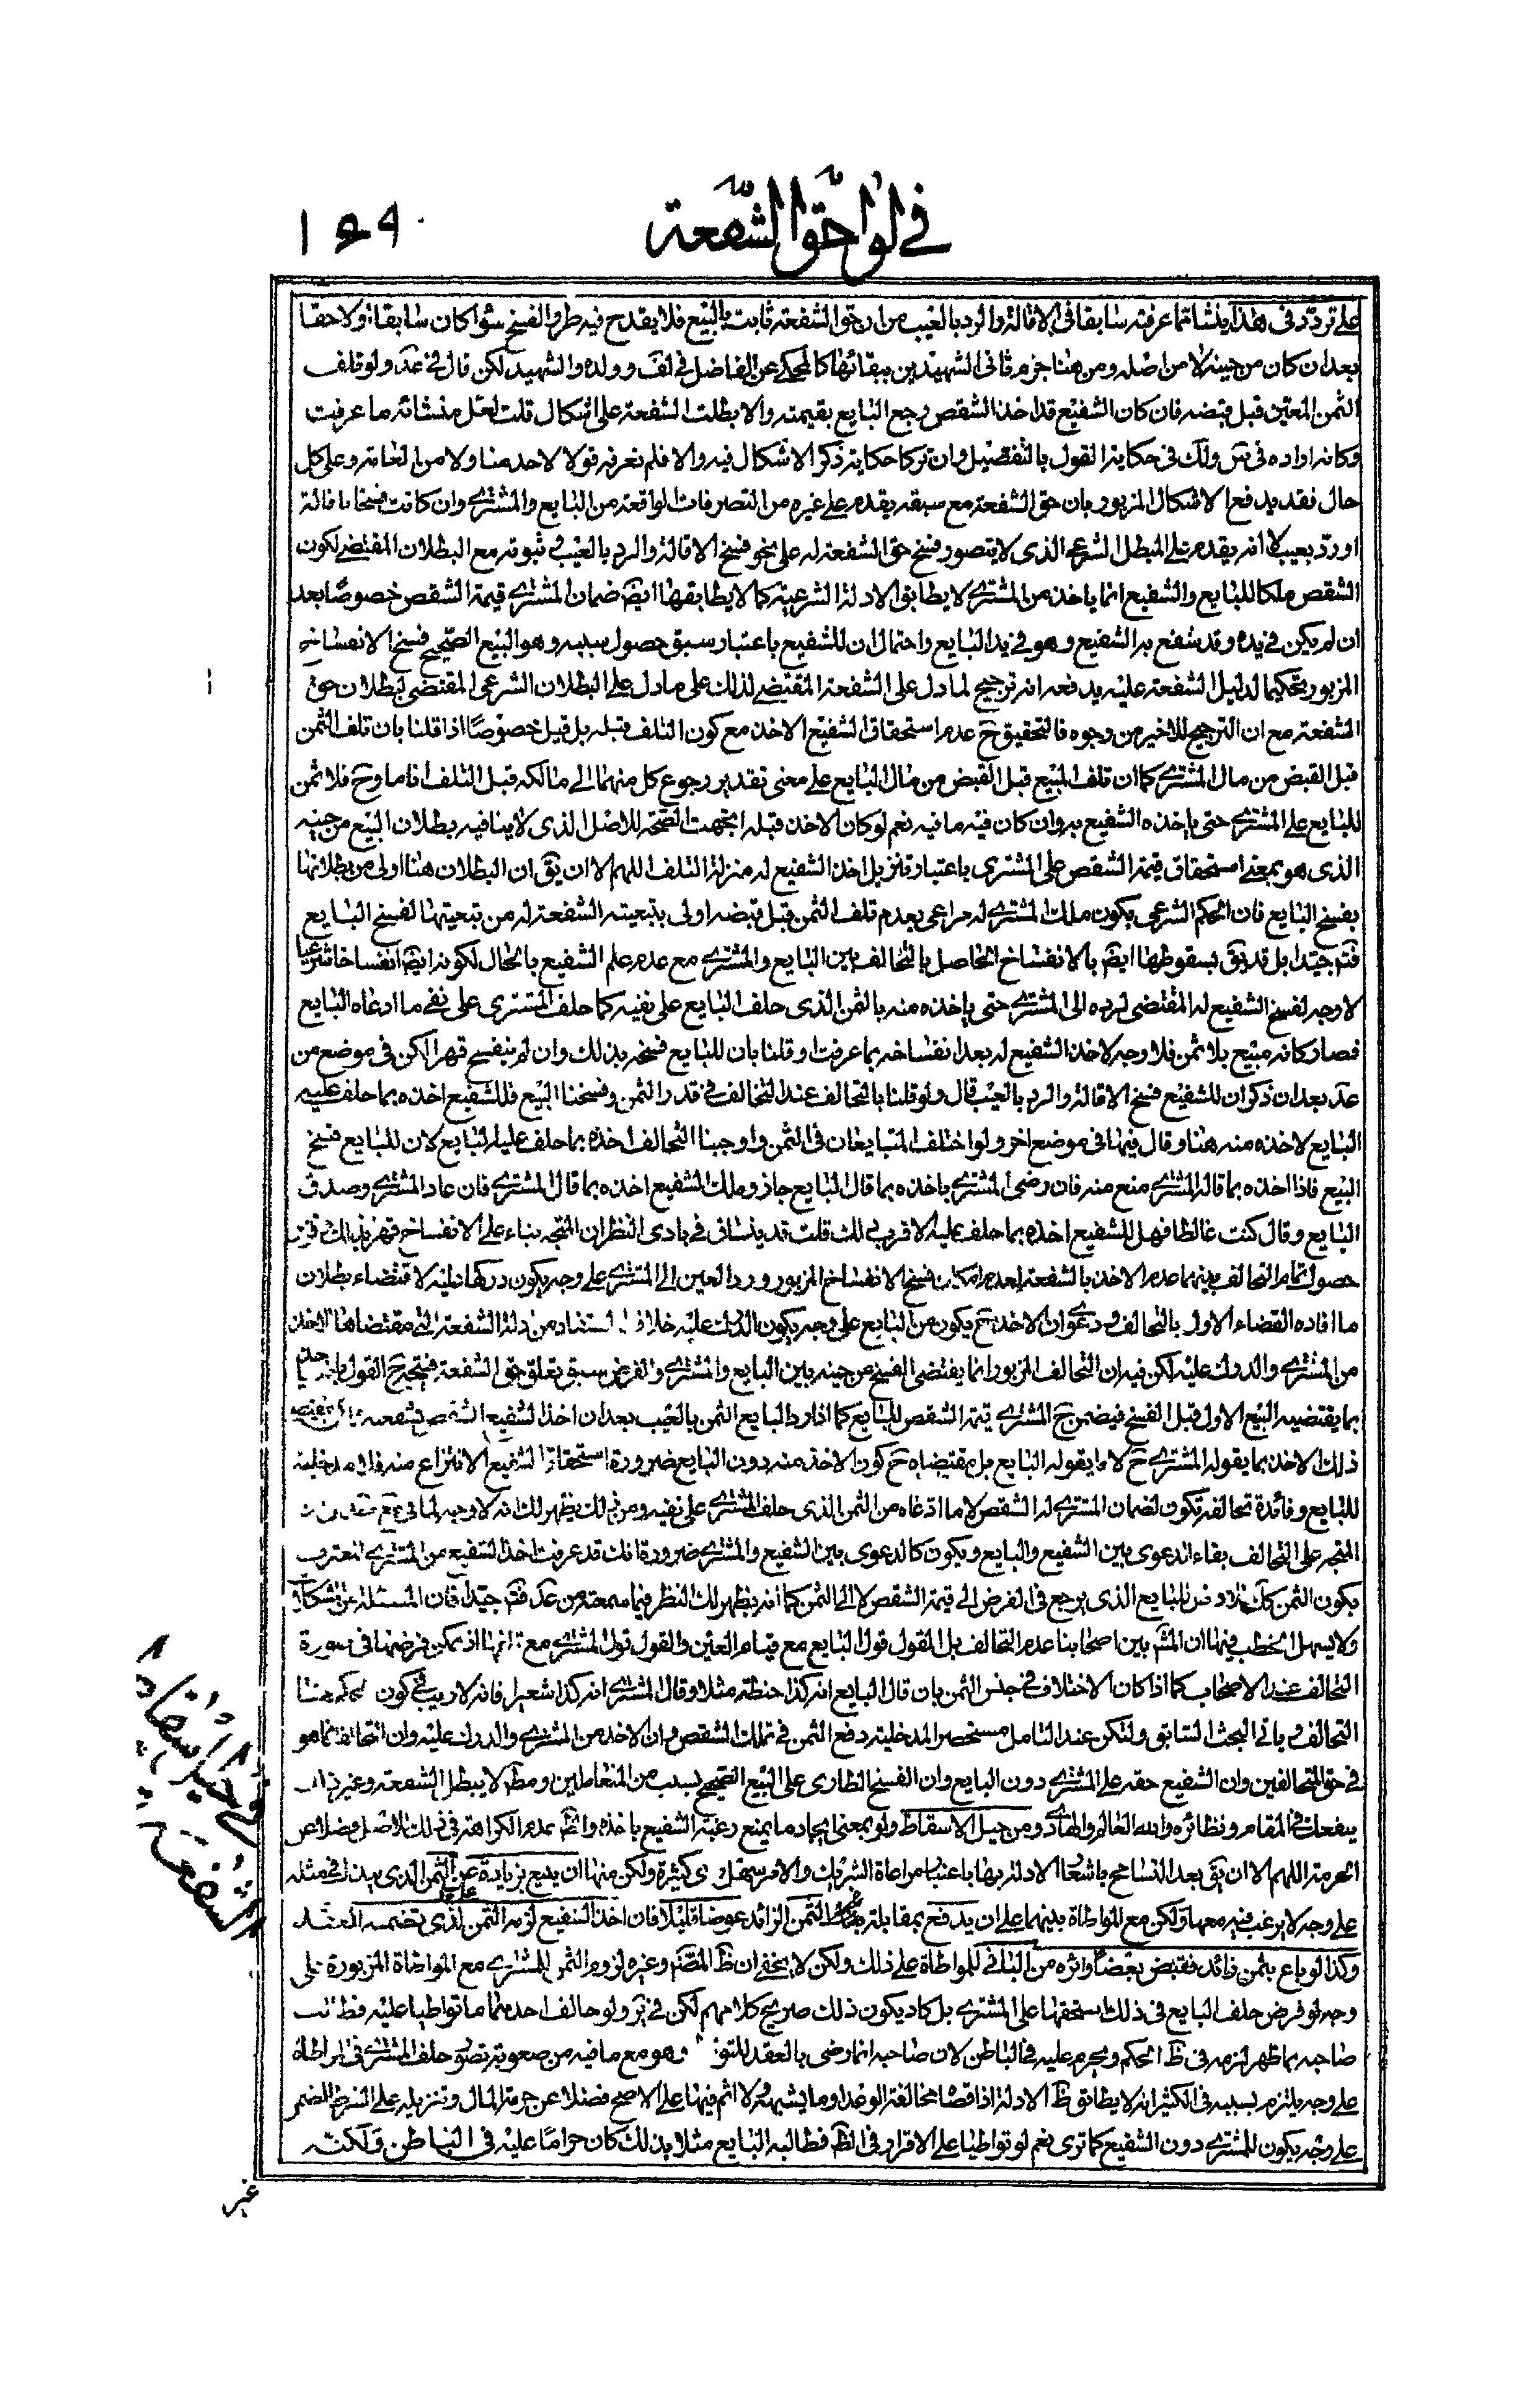 في لواحق الشفعة
١٥٩
على تردد في هذا ينشا مما عرفته سابقا في الاقالة والرد بالعيب من ان حق الشفعة ثابت بالبيع فلا يقدح فيه طرو الفسخ سواء كان سابقا او لاحقا
بعد ان كان من حينه لا من اصله ومن هنا جزم ثاني الشهيدين ببقائها كالمحكي عن الفاضل في لف وولده والشهيد لكن قال في عد ولو تلف
الثمن المعين قبل قبضه فان كان الشفيع قد اخذ الشقص رجع البايع بقيمته والا بطلت الشفعة على اشكال قلت لعل منشائه ما عرفت
وكانه اراده في س ولك في حكاية القول بالتفصيل وان تركا حكاية ذكر الاشكال فيه والا فلم نعرفه قولا لاحد منا ولا من العامة وعلى كل
حال فقد يدفع الاشكال المزبور بان حق الشفعة مع سبقه يقدم على غيره من التصرفات الواقعة من البايع والمشتري وان كانت فسخا باقالة
او رد بعيب لا انه يقدم على المبطل الشرعي الذي لا يتصور فسخ حق الشفعة له على نحو فسخ الاقالة والرد بالعيب ثبوته مع البطلان المقتضي لكون
الشقص ملكا للبايع والشفيع انما ياخذ من المشتري لا يطابق الادلة الشرعية كما لا يطابقها ايضا ضمان المشتري قيمة الشقص خصوصا بعد
ان لم يكن في يده وقد شفع به الشفيع وهو في يد البايع واحتمال ان للشفيع باعتبار سبق حصول سببه وهو البيع الصحيح فسخ الانفساخ
المزبور تحكيما لدليل الشفعة عليه يدفعه انه ترجيح لما دل على الشفعة المقتضي لذلك على ما دل على البطلان الشرعي المقتضي لبطلان حق
الشفعة مع ان الترجيح للاخير من وجوه فالتحقيق ح عدم استحقاق الشفيع الاخذ مع كون التلف قبله بل قيل خصوصا اذا قلنا بان تلف الثمن
قبل القبض من مال المشتري كما ان تلف المبيع قبل القبض من مال البايع على معنى تقدير رجوع كل منهما الى مالكه قبل التلف اناما وح فلا ثمن
للبايع على المشتري حتى ياخذه الشفيع به وان كان فيه ما فيه نعم لو كان الاخذ قبله اتجهت الصحة للاصل الذي لا ينافيه بطلان البيع من حينه
الذي هو بمعنى استحقاق قيمة الشقص على المشتري باعتبار تنزيل اخذ الشفيع له منزلة التلف اللهم الا ان يق ان البطلان هنا اولى من بطلانها
بفسخ البايع فان الحكم الشرعي بكون ملك المشتري له مراعى بعدم تلف الثمن قبل قبضه اولى بتبعيته الشفعة له من تبعيتها لفسخ البايع
فتم جيدا بل قد يق بسقوطها ايضا بالانفساخ الحاصل بالتحالف بين البايع والمشتري مع عدم علم الشفيع بالحال لكونه ايضا انفساخا شرعيا
لا وجه لفسخ الشفيع له المقتضي لرده الى المشتري حتى ياخذه منه بالثمن الذي حلف البايع على نفيه كما حلف المشتري على نفي ما ادعاه البايع
فصار كانه مبيع بلا ثمن فلا وجه لاخذ الشفيع له بعد انفساخه بما عرفت او قلنا بان للبايع فسخه بذلك وان لم ينفسخ قهرا لكن في موضع من
عد بعد ان ذكر ان للشفيع فسخ الاقالة والرد بالعيب قال ولو قلنا بالتحالف عند التخالف في قدر الثمن وفسخنا البيع فللشفيع اخذه بما حلف عليه
البايع لاخذه منه هنا وقال فيها في موضع اخر ولو اختلف المتبايعان في الثمن واوجبنا التحالف اخذه بما حلف عليه البايع لان للبايع فسخ
البيع فاذا اخذه بما قاله المشتري منع منه فان رضي المشتري باخذه بما قال البايع جاز وملك الشفيع اخذه بما قال المشتري فان عاد المشتري وصدق
البايع وقال كنت غالطا فهل للشفيع اخذه بما حلف عليه الاقرب ذلك قلت قد ينساق في بادي النظر ان المتجه بناء على الانفساخ قهرا بذلك
حصول تمام التحالف بينهما عدم الاخذ بالشفعة لعدم امكان فسخ الانفساخ المزبور ورد العين الى المشتري على وجه يكون دركها عليه لاقتضاء بطلان
ما افاده القضاء الاول بالتحالف ودعوى ان الاخذ ح يكون من البايع على وجه يكون الدرك عليه خلاف المستفاد من ادلة الشفعة التي مقتضاها الاخذ
من المشتري والدرك عليه لكن فيه ان التحالف المزبور انما يقتضي الفسخ من حينه بين البايع والمشتري والفرض سبق تعلق حق الشفعة فيتجه ح القول باخذه
بما يقتضيه البيع الاول قبل الفسخ فيضمن ح المشتري قيمة الشقص للبايع كما اذا رد البايع الثمن بالعيب بعد ان اخذ الشفيع الشقص بشفعته
ذلك الاخذ بما يقوله المشتري ح لا ما يقوله البايع بل مقتضاه ح كون الاخذ منه دون البايع ضرورة استحقاق الشفيع الانتزاع منه فلا مدخلية
للبايع وفائدة تحالفه تكون لضمان المشتري له الشقص لا ما ادعاه من الثمن الذي حلف المشتري على نفيه ومن ذلك يظهر لك انه لا وجه لما في
المتجه على التحالف بقاء الدعوى بين الشفيع والبايع ويكون كالدعوى بين الشفيع والمشتري ضرورة انك قد عرفت اخذ الشفيع من المشتري المعترف
بكون الثمن كك فلا دخل للبايع الذي يرجع في الفرض الى قيمة الشقص لا الى الثمن كما انه يظهر لك النظر فيما سمعته من عد فتم جيدا فان المسئلة من المشكلات
ولا يسهل الخطب فيها ان المشهور بين اصحابنا عدم التحالف بل القول قول البايع مع قيام العين والقول قول المشتري مع تلفها اذ يمكن فرضها في صورة
التحالف عند الاصحاب كما اذا كان الاختلاف في جنس الثمن بان قال البايع انه كذا حنطة مثلا وقال المشتري انه كذا شعيرا فانه لا ريب في كون الحكم هنا
التحالف وياتي البحث السابق ولتكن عند التامل مستحضرا لمدخلية دفع الثمن في تملك الشقص وان الاخذ من المشتري والدرك عليه وان التحالف انما هو
في حق المتحالفين وان الشفيع حقه على المشتري دون البايع وان الفسخ الطارى على البيع الصحيح بسبب من المتعاملين لا يبطل الشفعة وغير ذلك
ينفعك في المقام ونظائره والله العالم والهادي ومن حيل الاسقاط ولو بمعنى ايجاد ما يمنع رغبة الشفيع باخذه والظ عدم الكراهة في ذلك للاصل فضلا عن
الحرمة اللهم الا ان يق بعد التسامح باشعار الادلة بها باعتبار مراعاة الشريك والامر سهل كثيرة ولكن منها ان يبيع بزيادة عن الثمن الذي يبذل في مثله
على وجه لا يرغب فيه معها ولكن مع المواطاة بينهما على ان يدفع بمقابلة الثمن الزائد عوضا قليلا فان اخذ الشفيع لزمه الثمن الذي تضمنه العقد
وكذا لو باع بثمن زائد فقبض بعضا وابرئه من الباقي للمواطاة على ذلك ولكن لا يخفى ان ظ المصنف وغيره لزوم الثمن للمشتري مع المواطاة المزبورة على
وجه لو فرض حلف البايع في ذلك استحقها على المشتري بل كاد يكون ذلك صريح كلامهم لكن في ير ولو خالف احدهما ما تواطيا عليه فطالب
صاحبه بما ظهر لزمه في ظ الحكم ويحرم عليه في الباطن لان صاحبه انما رضي بالعقد للتو وهو مع ما فيه من صعوبة تصور حلف المشتري في المواطاة
على وجه يلتزم بسببه في الكثير انه لا يطابق ظ الادلة اذ اقصاه مخالفة الوعد او ما يشبهه ولا اثم فيها على الاصح فضلا عن حرمة المال وتنزيله على الشرط المضمر
على وجه يكون للمشتري دون الشفيع كما ترى نعم لو تواطيا على الاقرار في الظ فطالبه البايع مثلا بذلك كان حراما عليه في الباطن ولكنه
غير
في حيل اسقاط
الشفعة